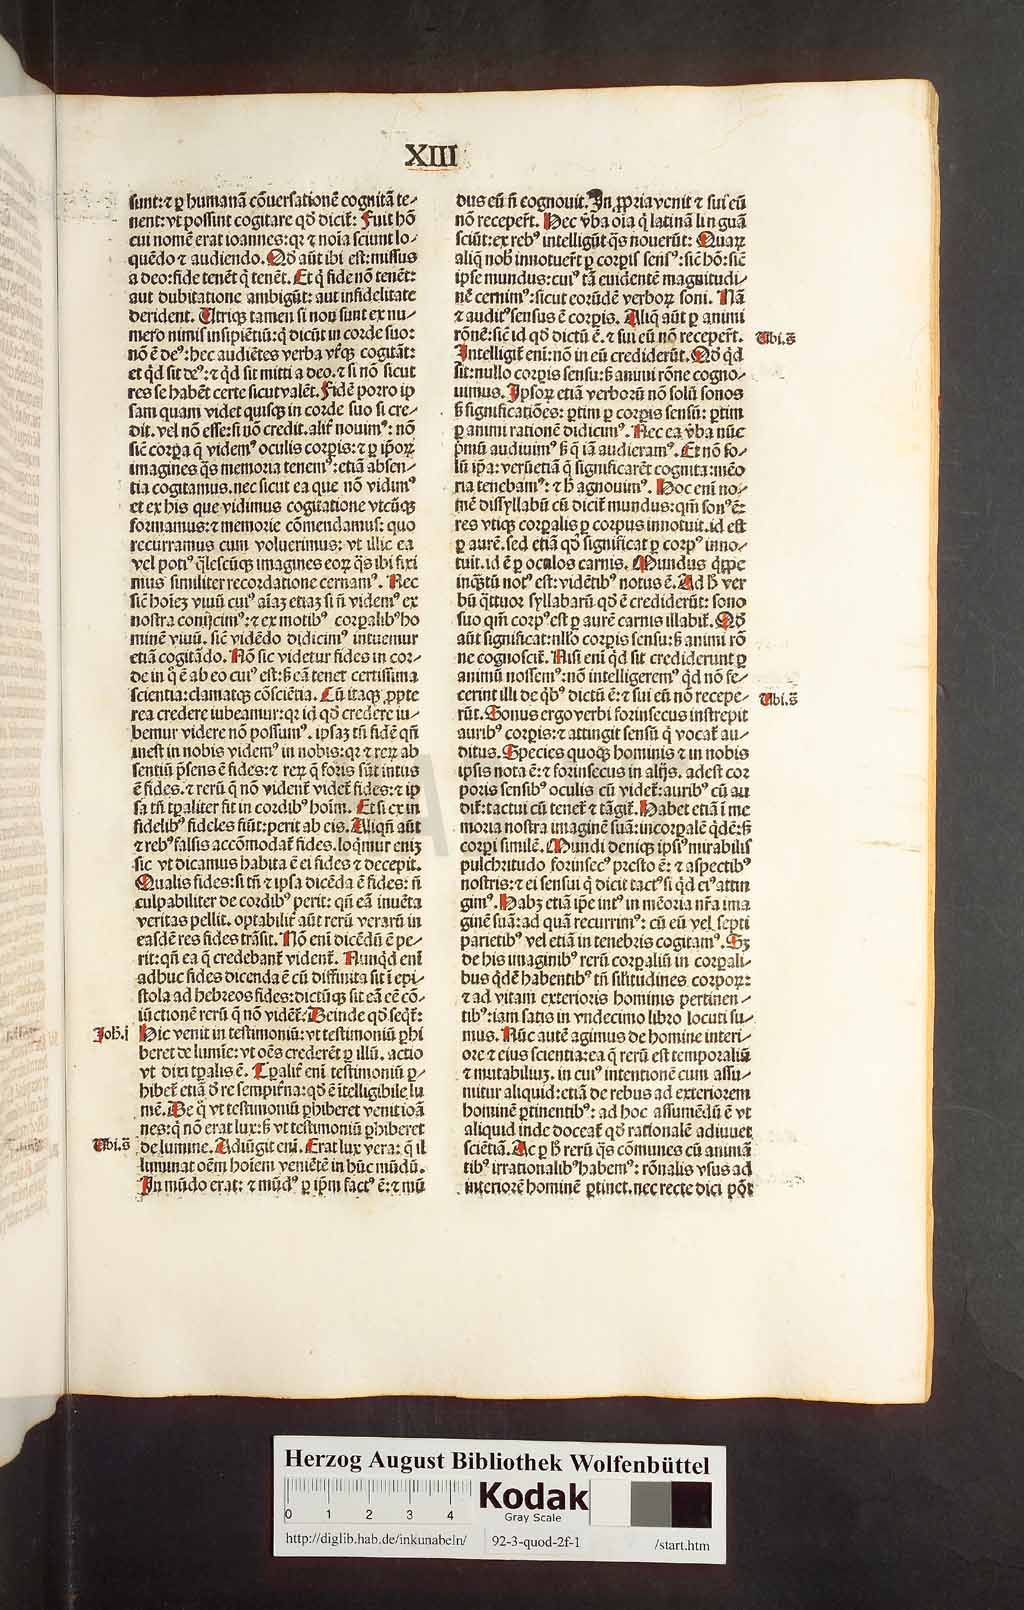 XIII
sunt: ⁊ ꝑ humanā cōuersationē cognitā te-
nent: vt possint cogitare qd̄ dicit̄: Fuit hō
cui nomē erat ioannes: qꝛ ⁊ noīa sciunt lo-
quēdo ⁊ audiendo. Qd̄ aūt ibi est: missus
a deo: fide tenēt q̄ tenēt. Et q̄ fide nō tenēt:
aut dubitatione ambigūt: aut infidelitate
derident. Utriqꝫ tamen si non sunt ex nu-
mero nimis insipiētiū: q̄ dicūt in corde suo:
nō ē deꝰ: hec audiētes verba vtqꝫ cogitāt:
et qd̄ sit deꝰ: ⁊ qd̄ sit mitti a deo. ⁊ si nō sicut
res se habēt certe sicut valēt. Fidē porro ip
sam quam videt quisqꝫ in corde suo si cre-
dit. vel nō esse: si nō credit. alit̄ nouimꝰ: nō
sic̄ corpa q̄ videmꝰ oculis corpis: ⁊ ꝑ ip̄oꝝ
imagines q̄s memoria tenemꝰ: etiā absen-
tia cogitamus. nec sicut ea que nō vidimꝰ
et ex his que vidimus cogitatione vtcūqꝫ
formamus: ⁊ memorie cōmendamus: quo
recurramus cum voluerimus: vt illic ea
vel potiꝰ q̄lescūqꝫ imagines eoꝝ q̄s ibi fixi
mus similiter recordatione cernamꝰ. Nec
sic̄ hoīeꝫ viuū cuiꝰ aīaꝫ etiaꝫ si n̄ videmꝰ ex
nostra conijcimꝰ: ⁊ ex motibꝰ corpalibꝰ ho
minē viuū. sic̄ vidēdo didicimꝰ intuemur
etiā cogitādo. Nō sic videtur fides in cor-
de in q̊ ē ab eo cuiꝰ est: ß eā tenet certissima
scientia: clamatqꝫ cōsciētia. Cū itaqꝫ ꝓpte
rea credere iubeamur: qꝛ id qd̄ credere iu-
bemur videre nō possumꝰ. ipsaꝫ tn̄ fidē qn̄
inest in nobis videmꝰ in nobis: qꝛ ⁊ reꝝ ab
sentiū p̄sens ē fides: ⁊ reꝝ q̄ foris sūt intus
ē fides. ⁊ rerū q̄ nō vident̄ videt̄ fides: ⁊ ip
sa tn̄ tpaliter fit in cordibꝰ hoīm. Et si ex in
fidelibꝰ fideles fiūt: perit ab eis. Aliqn̄ aūt
⁊ rebꝰ falsis accōmodat̄ fides. loq̄mur eniꝫ
sic vt dicamus habita ē ei fides ⁊ decepit.
Qualis fides: si tn̄ ⁊ ipsa dicēda ē fides: n̄
culpabiliter de cordibꝰ perit: qn̄ eā inuēta
veritas pellit. optabilit̄ aūt rerū verarū in
easdē res fides trāsit. Nō enī dicēdū ē pe-
rit: qn̄ ea q̄ credebant̄ vident̄. Nunqd̄ enī
adhuc fides dicenda ē cū diffinita sit ī epi-
stola ad hebreos fides: dictūqꝫ sit eā eē cō-
iūctionē rerū q̄ nō vident̄: Deinde qd̄ seqt̄:
Joh.i
Hic venit in testimoniū: vt testimoniū ꝑhi
beret de lumīe: vt oēs crederēt ꝑ illū. actio
vt dixi tpalis ē. Tpalit̄ enī testimoniū ꝑ-
hibet̄ etiā d̄ re sempit̄na: qd̄ ē ītelligibile lu
mē. De q̊ vt testimoniū ꝑhiberet venit ioā
nes: q̄ nō erat lux: ß vt testimoniū ꝑhiberet
Ubi.s̄
de lumine. Adiūgit enī. Erat lux vera: q̄ il
luminat oēm hoīem veniētē in hūc mūdū.
In mūdo erat: ⁊ mūdꝰ ꝑ ip̄m factꝰ ē: ⁊ mū
dus eū n̄ cognouit. In ꝓpria venit ⁊ sui eū
nō recepert̄. Hec v̄ba oīa q̄ latinā linguā
sciūt: ex rebꝰ intelligūt q̄s nouerūt: Quaꝝ
aliq̄ nob̄ innotuert̄ ꝑ corpis sensꝰ: sic̄ hō: sic̄
ipse mundus: cuiꝰ tā euidentē magnitudi-
nē cernimꝰ: sicut eorūdē verboꝝ soni. Nā
⁊ auditꝰ sensus ē corpis. Aliq̄ aūt ꝑ animi
rōnē: sic̄ id qd̄ dictū ē. ⁊ sui eū nō recepert̄.
Ubi.s̄
Intelligit̄ eni: nō in eū crediderūt. Qd̄ qd̄
sit: nullo corpis sensu: ß animi rōne cogno-
uimus. Ipsoꝝ etiā verborū nō solū sonos
ß significatiōes: ꝑtim ꝑ corpis sensū: ꝑtim
ꝑ animi rationē didicimꝰ. Nec ea v̄ba nūc
p̄mū audiuimꝰ ß q̄ iā audieramꝰ. Et nō so-
lū ip̄a: verūetiā q̄ significarēt cognita: mēo
ria tenebamꝰ: ⁊ h̄ agnouimꝰ. Hoc enī no-
mē dissyllabū cū dicit̄ mundus: qm̄ sonꝰ ē:
res vtiqꝫ corpalis ꝑ corpus innotuit. id est
ꝑ aurē. sed etiā qd̄ significat ꝑ corpꝰ inno-
tuit. id ē ꝑ oculos carnis. Mundus q̄ppe
inq̄ntū notꝰ est: vidētibꝰ notus ē. Ad h̄ ver
bū q̄ttuor syllabarū qd̄ ē crediderūt: sono
suo qm̄ corpꝰ est ꝑ aurē carnis illabit̄. Qd̄
aūt significat: nllo corpis sensu: ß animi rō
ne cognoscit̄. Nisi enī qd̄ sit crediderunt ꝑ
animū nossemꝰ: nō intelligeremꝰ qd̄ nō fe-
cerint illi de qbꝰ dictū ē: ⁊ sui eū nō recepe-
Ubi.s̄
rūt. Sonus ergo verbi forinsecus instrepit
auribꝰ corpis: ⁊ attingit sensū q̄ vocat̄ au-
ditus. Species quoqꝫ hominis ⁊ in nobis
ipsis nota ē: ⁊ forinsecus in alijs. adest cor
poris sensibꝰ oculis cū videt̄: auribꝰ cū au
dit̄: tactui cū tenet̄ ⁊ tāgit̄. Habet etiā ī me
moria nostra imaginē suā: incorpalē q̄dē: ß
corpi similē. Mundi deniqꝫ ipsiꝰ mirabilis
pulchritudo forinsecꝰ presto ē: ⁊ aspectibꝰ
nostris: ⁊ ei sensui q̄ dicit̄ tactꝰ si qd̄ eiꝰ attin
gimꝰ. Habꝫ etiā ip̄e intꝰ in mēoria nr̄a ima
ginē suā: ad quā recurrimꝰ: cū eū vel septi
parietibꝰ vel etiā in tenebris cogitamꝰ. Sꝫ
de his imaginibꝰ rerū corpaliū in corpali-
bus q̄dē habentibꝰ tn̄ silitudines corpoꝝ:
⁊ ad vitam exterioris hominis pertinen-
tibꝰ: iam satis in vndecimo libro locuti su-
mus. Nūc autē agimus de homine interi-
ore ⁊ eius scientia: ea q̄ rerū est temporaliū
⁊ mutabiliuꝫ. in cuiꝰ intentionē cum assu-
mitur aliquid: etiā de rebus ad exteriorem
hominē ꝑtinentibꝰ: ad hoc assumēdū ē vt
aliquid inde doceat̄ qd̄ rationalē adiuuet
sciētiā. Ac ꝑ h̄ rerū q̄s cōmunes cū animā
tibꝰ irrationalibꝰ habemꝰ: rōnalis vsus ad
interiorē hominē ꝑtinet. nec recte dici pōt
Herzog August Bibliothek Wolfenbüttel
0 1 2 3 4
Kodak
Gray Scale
http://diglib.hab.de/inkunabeln/ 92-3-quod-2f-1 /start.htm